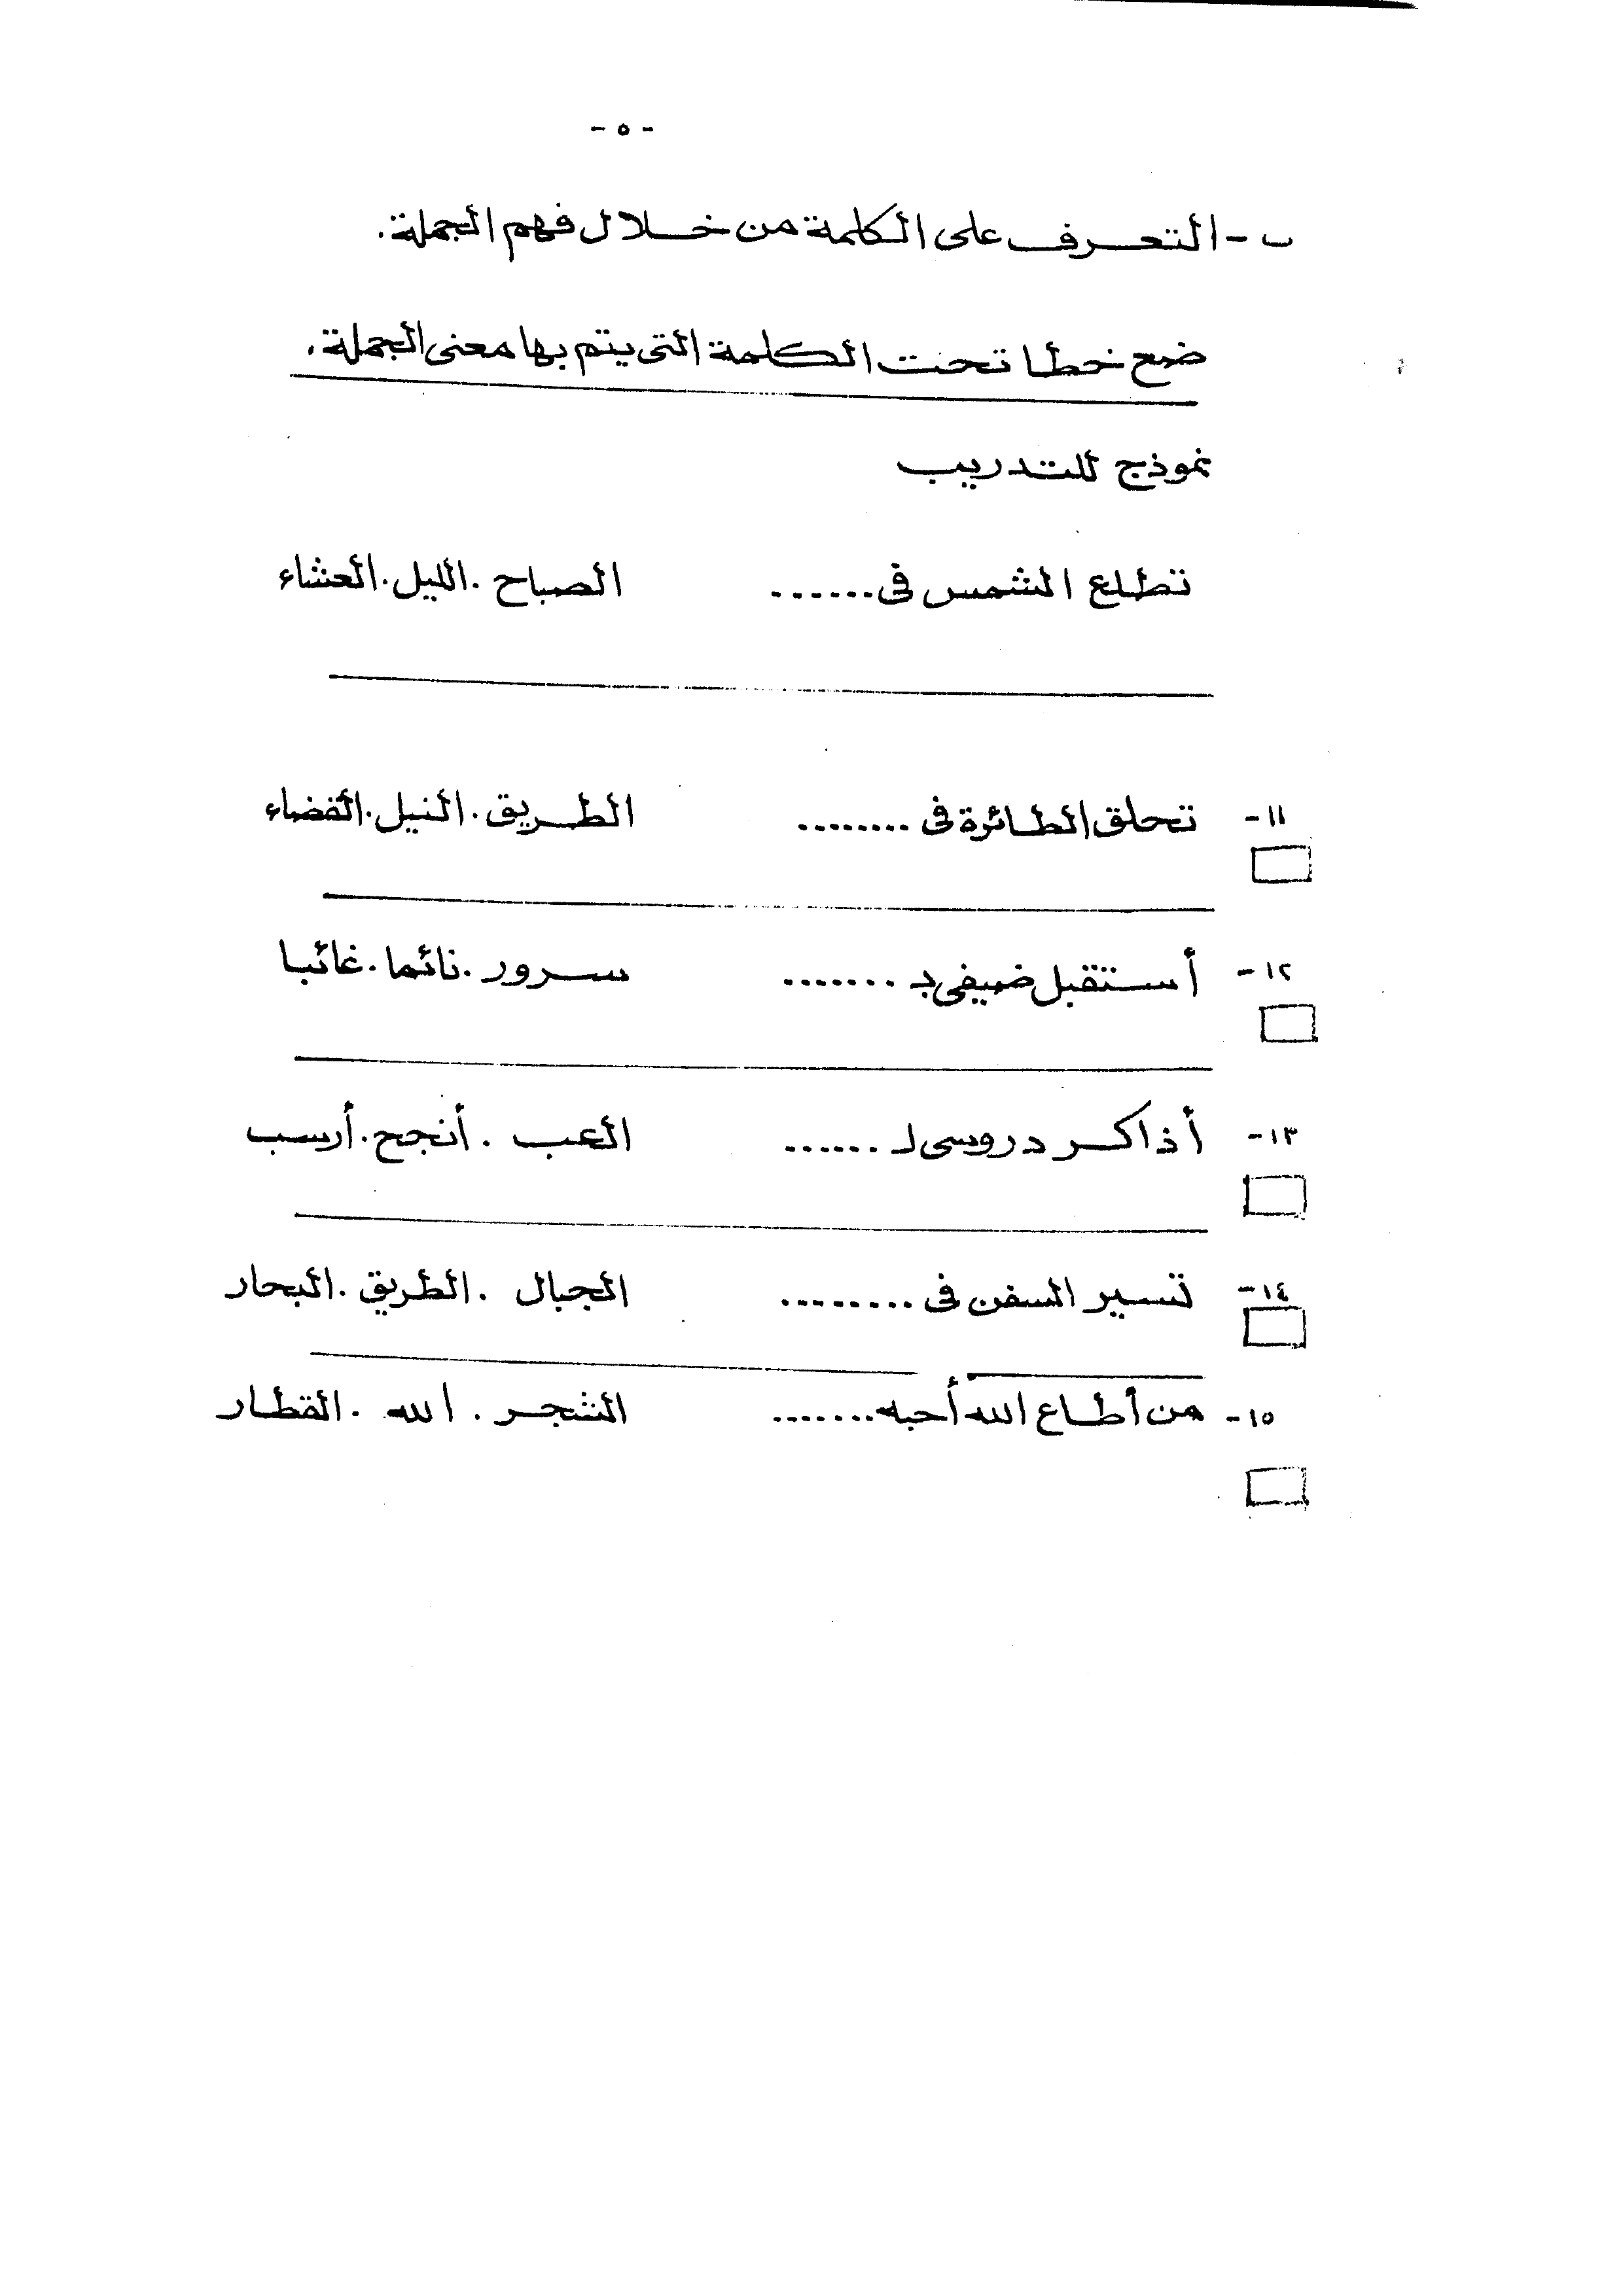 - ٥ -
ب - التعرف على الكلمة من خلال فهم الجملة.
ضع خطا تحت الكلمة التى يتم بها معنى الجملة.
نموذج للتدريب
تطلع الشمس فى ...... الصباح . الليل . العشاء
١١- تحلق الطائرة فى ........ الطريق . النيل . الفضاء
١٢- أستقبل ضيفى بـ ....... سرور . نائما . غائبا
١٣- أذاكر دروسى لـ ...... العب . أنجح . أرسب
١٤- تسير السفن فى ........ الجبال . الطريق . البحار
١٥- من أطاع الله أحبه ....... الشجر . الله . القطار